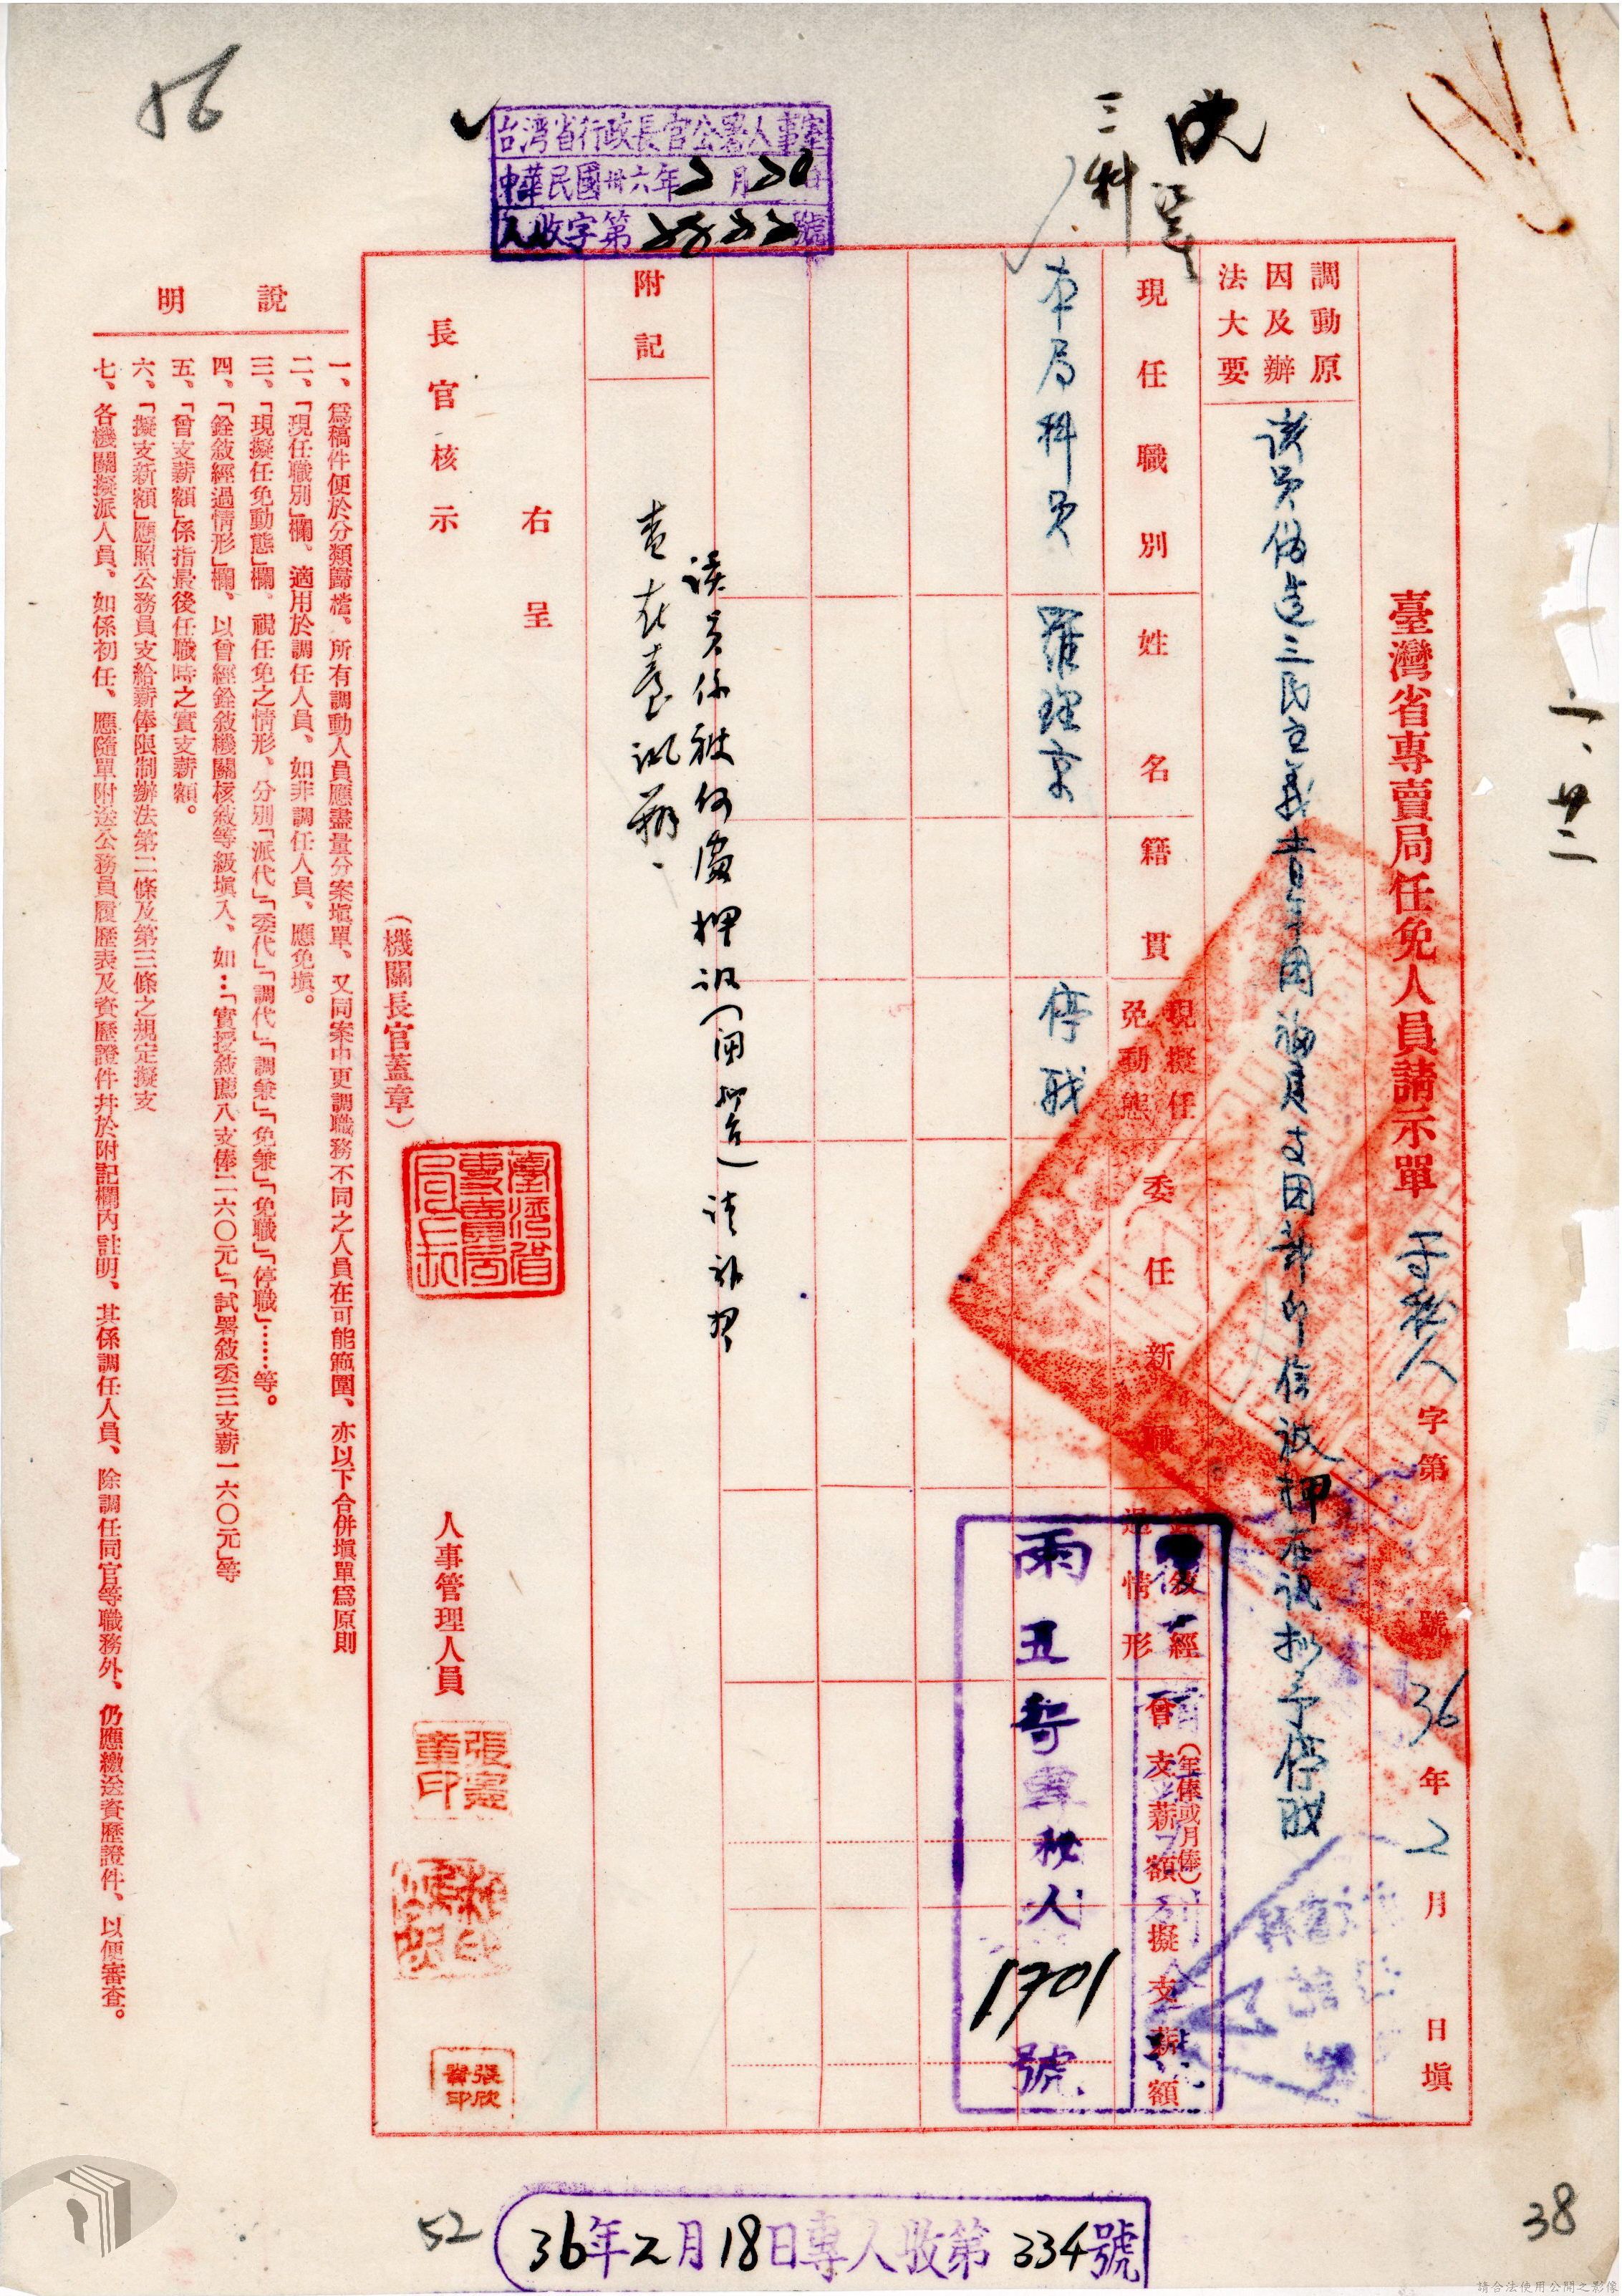 臺灣省專賣局任免人員請示單
字第
號
36年2月
日填
調動原
因及辦
法大要
該員偽造三民主義青年團福建支團部印信被押在訊擬予停職
現任職別
姓名
籍貫
現擬任
免動態
委任新
敘經
過情形
曾支薪額
(年俸或月俸)
擬支薪額
本局科員
羅理東
停職
附記
該員係被何處押訊
請補
右呈
長官核示
(機關長官蓋章)
臺灣省專賣局局長
人事管理人員
說明
一、為稿件便於分類歸檔、所有調動人員應盡量分案塡單、又同案中更調職務不同之人員在可能範圍、亦以下合併塡單為原則
二、「現任職別」欄、適用於調任人員、如非調任人員、應免塡。
三、「現擬任免動態」欄。視任免之情形、分別「派代」「委代」「調代」「調兼」「免兼」「免職」「停職」……等。
四、「銓敘經過情形」欄、以曾經銓敘機關核敘等級塡入、如…「實授敘薦八支俸二六〇元」「試署敘委三支薪一六〇元」等
五、「曾支薪額」係指最後任職時之實支薪額。
六、「擬支新額」應照公務員支給薪俸限制辦法第二條及第三條之規定擬支
七、各機關擬派人員、如係初任、應隨單附送公務員履歷表及資歷證件幷於附記欄內註明、其係調任人員、除調任同官等職務外、仍應繳送資歷證件、以便審查。
台灣省行政長官公署人事室
中華民國卅六年2月20日
收字第
號
三科
二、廿二
1701
號
36年2月18日專人收第334號
56
52
38
請合法使用公開之影像